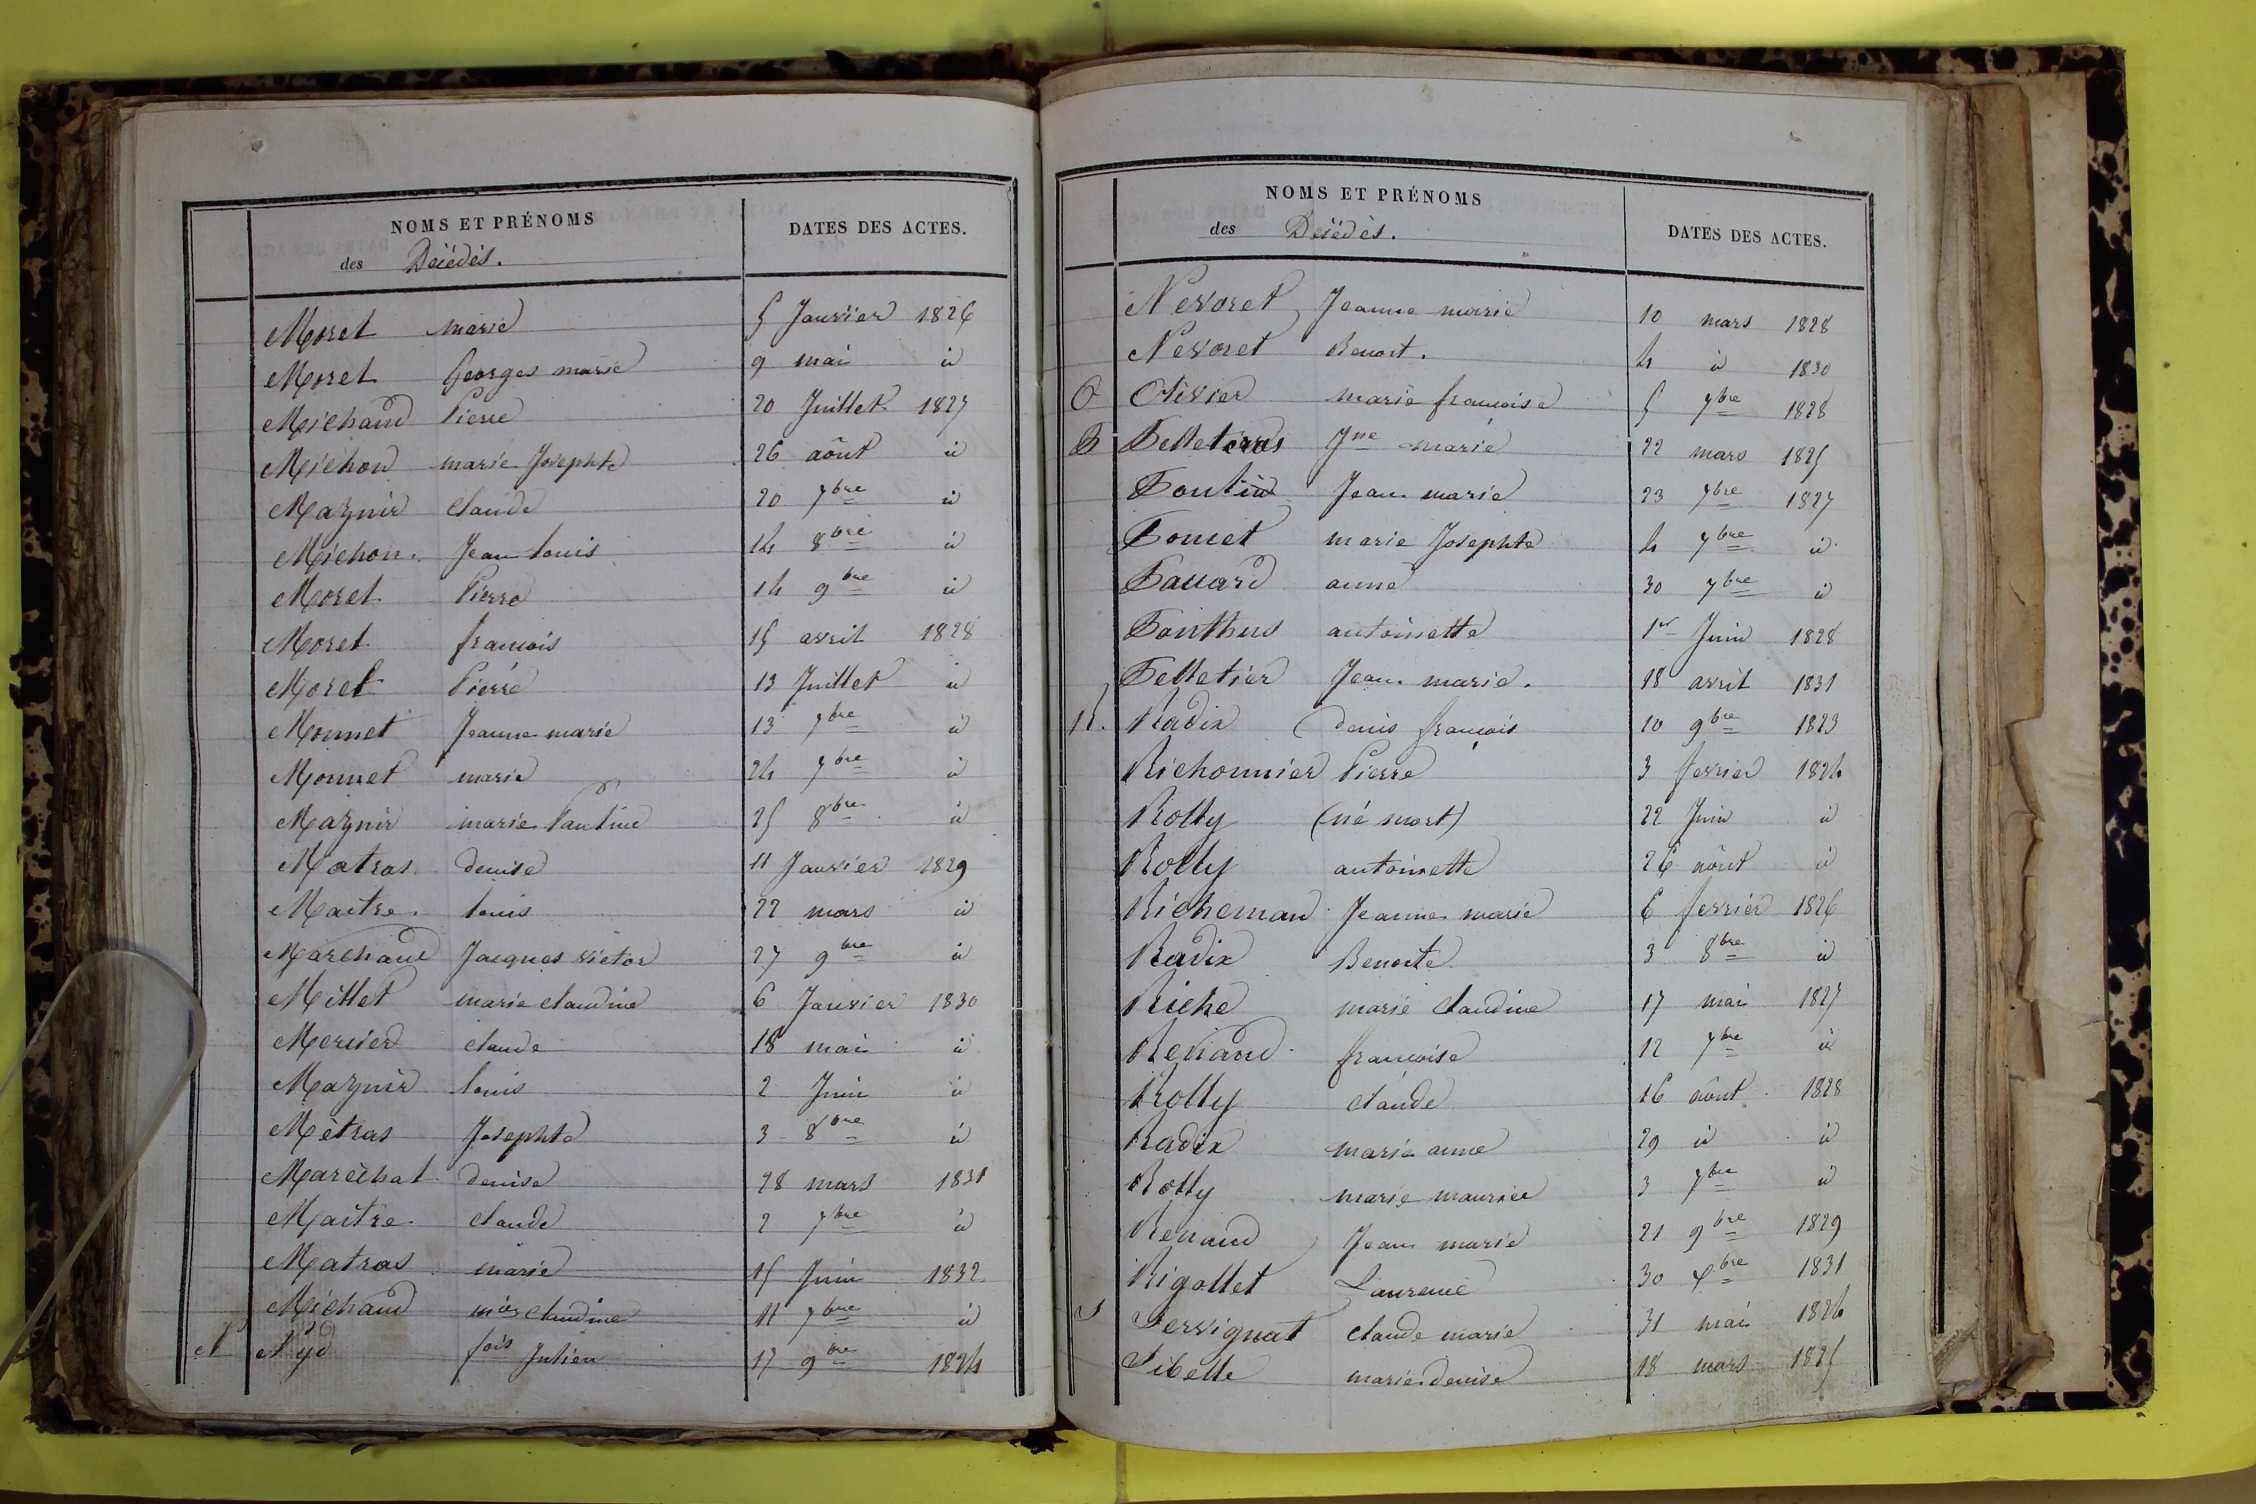 NOMS ET PRÉNOMS
des Décédés.
DATES DES ACTES.
Moret marie 5 Janvier 1826
Moret Georges marie 9 mai id
Michaud Pierre 20 Juillet 1827
Michon marie Josephte 26 août id
Mazuir claude 20 7bre id
Michon. Jean Louis 14 8bre id
Moret Pierre 14 9bre id
Moret francois 15 avril 1828
Moret Pierre 13 Juillet id
Monnet Jeanne marie 13 7bre id
Monnet marie 24 7bre id
Mazuir marie Pauline 25 8bre id
Matras denise 11 Janvier 1829
Maitre. Louis 22 mars id
Marchand Jacques victor 27 9bre id
Millet marie claudine 6 Janvier 1830
Mercier claude 18 mai id
Mazuir Louis 2 Juin id
Mètras Josephte 3 8bre id
Maréchal denise 28 mars 1831
Maitre. claude 2 7bre id
Matras marie 15 Juin 1832
Michaud mie claudine 11 7bre id
N fois Julien 17 9bre 1824
NOMS ET PRÉNOMS
des Décédés.
DATES DES ACTES.
Nevoret Jeanne marie 10 mars 1828
Nevoret Benoit. 4 id 1830
O Olivier marie francoise 5 7bre 1828
P Pelletier Jne marie 22 mars 1825
Poutin Jean marie 23 7bre 1827
Poncet marie Josephte 4 7bre id
Pavard anne 30 7bre id
Ponthus antoinette 1er Juin 1828
Pelletier Jean marie. 18 avril 1831
R. Radix denis françois 10 9bre 1823
Richonnier Pierre 3 fevrier 1824
Rolly (né mort) 22 Juin id
Rolly antoinette 26 août id
Richeman Jeanne marie 6 fevrier 1826
Radix Benoite 3 8bre id
Riche marie Claudine 17 mai 1827
Renaud francoise 12 7bre id
Rolly claude 16 août 1828
Radix marie anne 29 id id
Rolly marie maurice 3 7bre id
Renaud Jean marie 21 9bre 1829
Rigollet Laurence 30 Xbre 1831
S Servignat claude marie 31 mai 1824
Sibelle marie denise 18 mars 1825